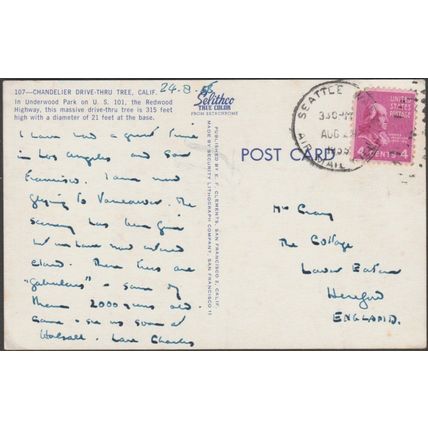 107—CHANDELIER DRIVE-THRU TREE, CALIF.
In Underwood Park on U. S. 101, the Redwood
Highway, this massive drive-thru tree is 315 feet
high with a diameter of 21 feet at the base.
24-8-55
Selithco
TRUE COLOR
FROM EKTACHROME
I have had a great time
in Los Angeles and San
Francisco. I am now
flying to Vancouver. The
scenery has been fine
These trees are
- some of
them 2000 years old
see us soon at
Walsall. Love Charles
PUBLISHED BY F. F. CLEMENTS, SAN FRANCISCO 2, CALIF.
MADE BY SECURITY LITHOGRAPH COMPANY, SAN FRANCISCO 11
POST CARD
SEATTLE
330 PM
AUG
AIR MAIL
UNITED
STATES
POSTAGE
4 CENTS 4
The Cottage
Lower Eaton
Hereford
ENGLAND.